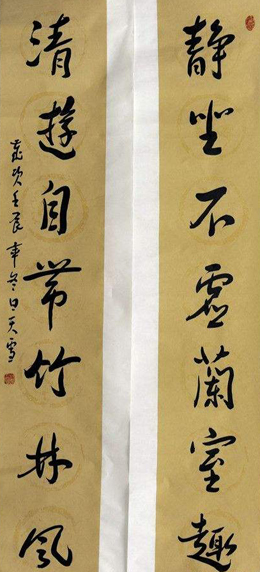 静坐不虚蘭室趣
清遊自带竹林风
歲次壬辰年冬日天雪